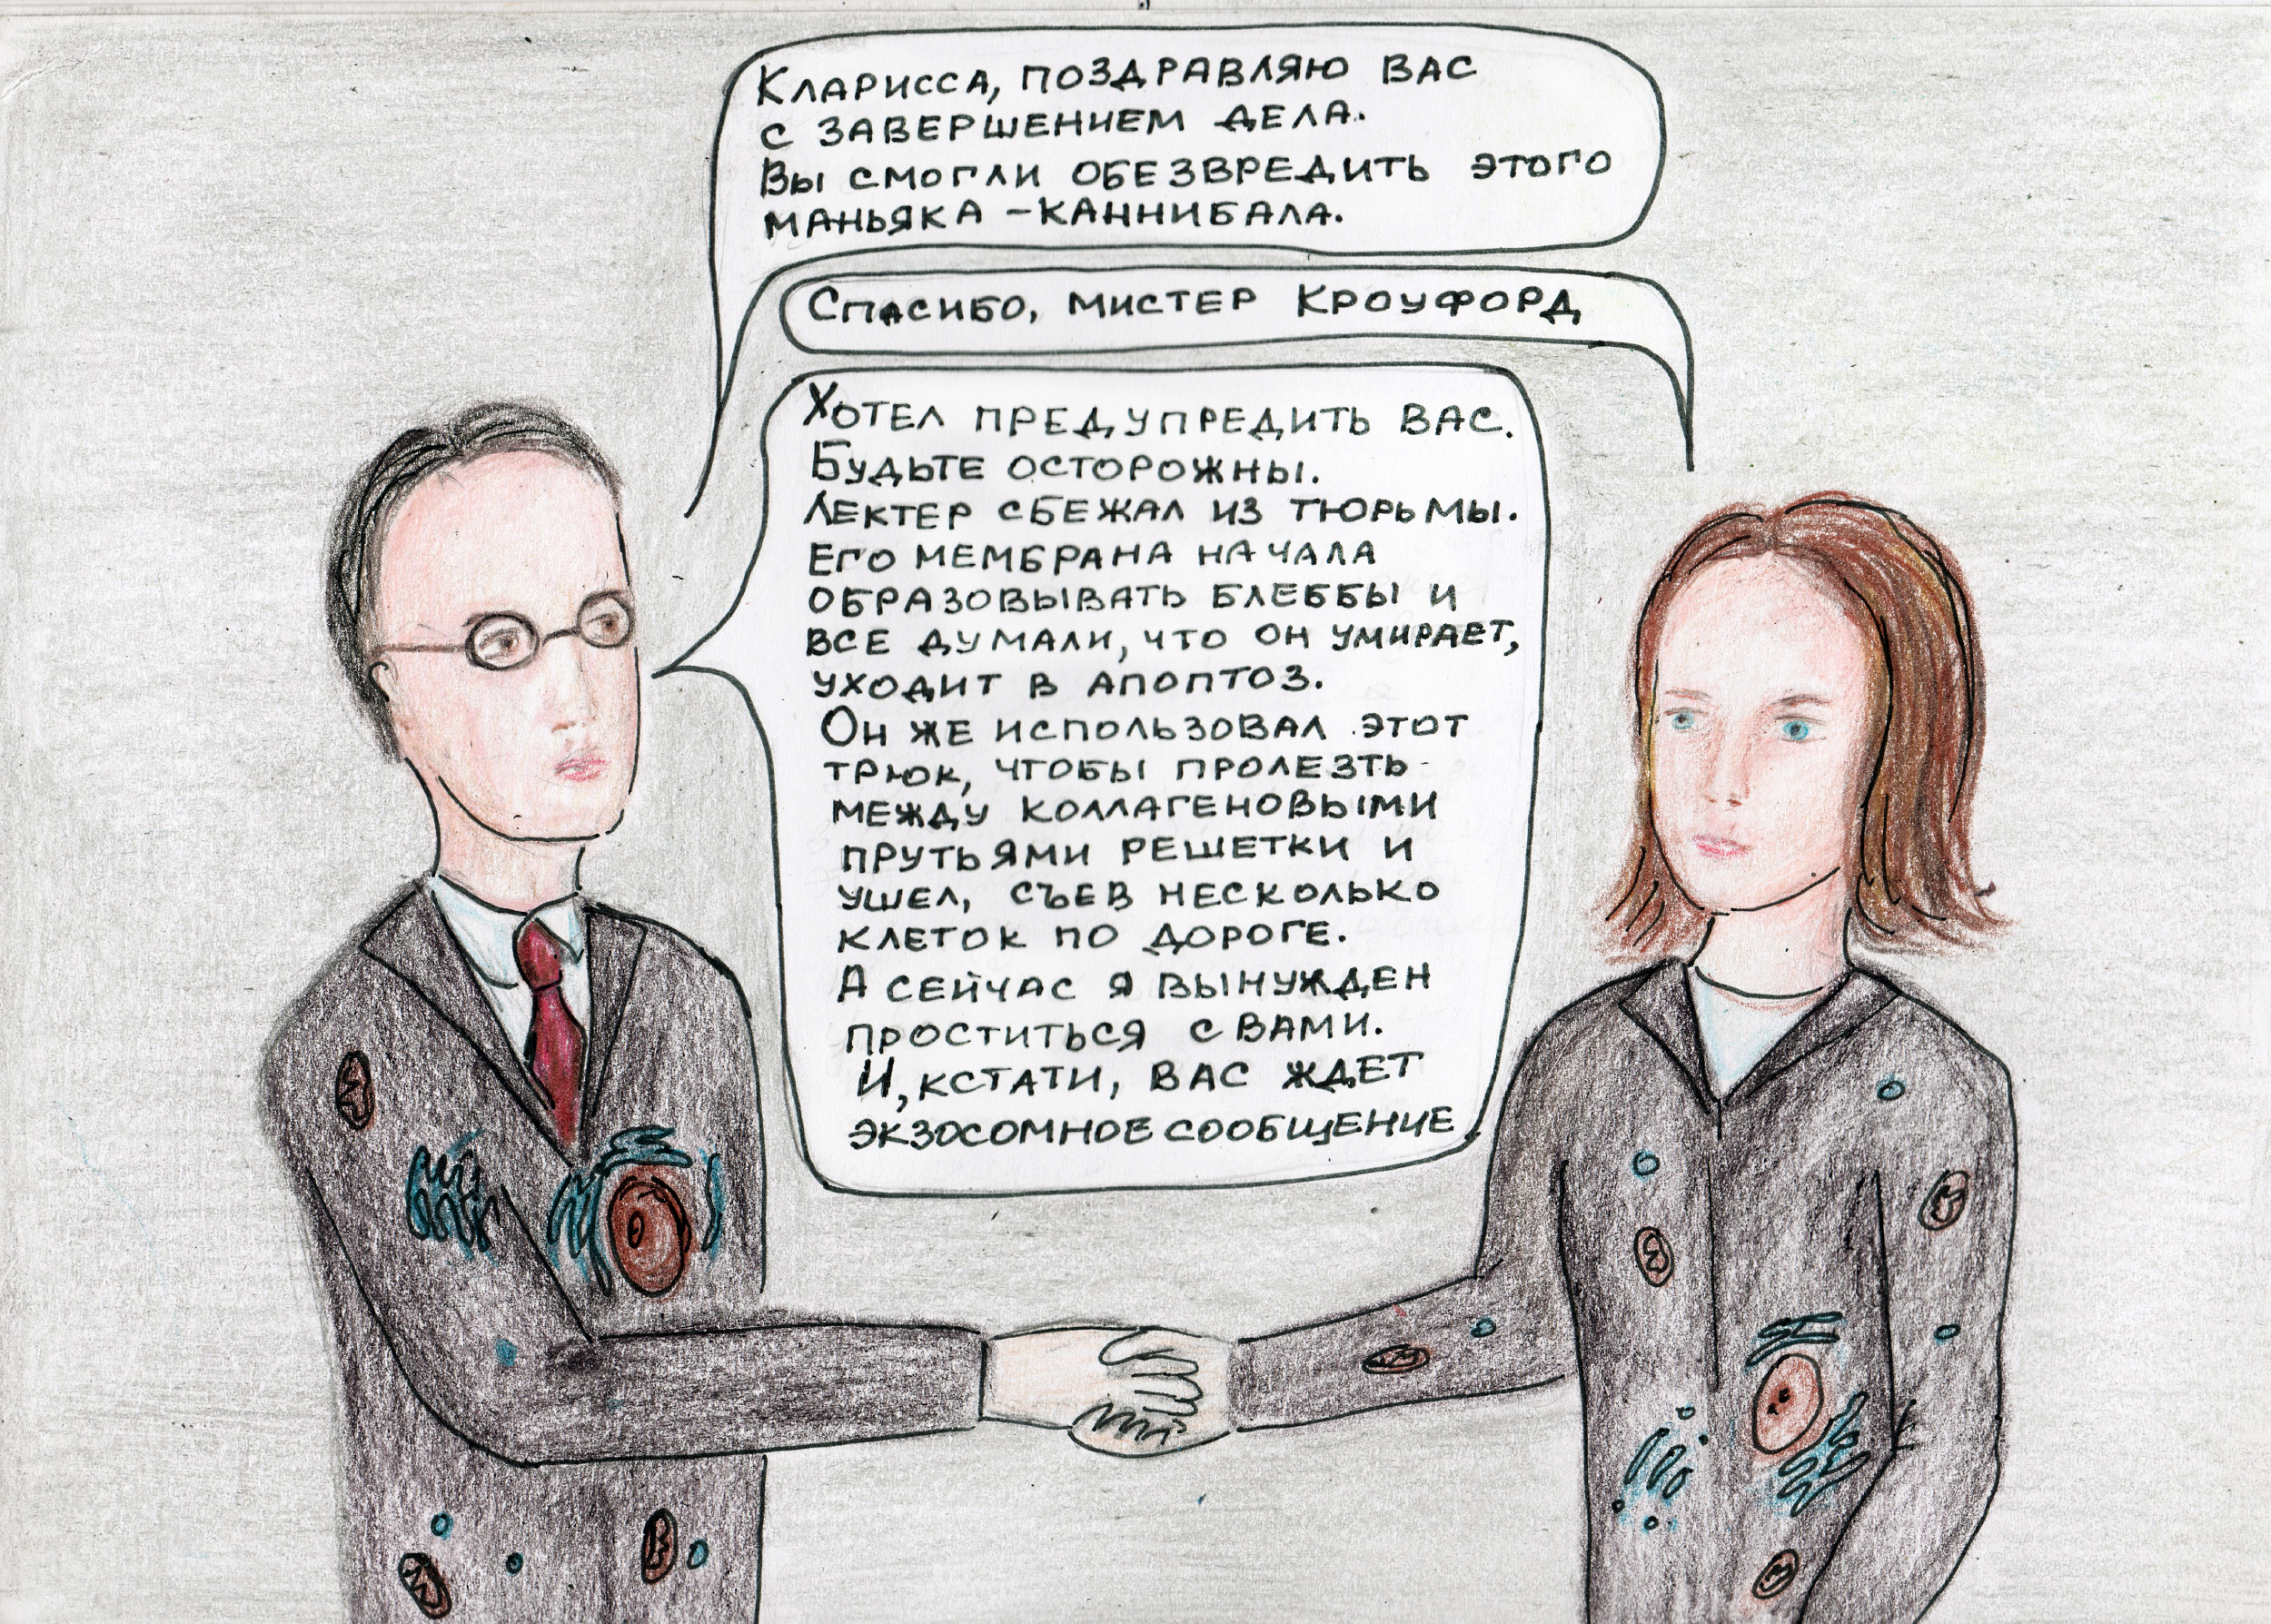 Кларисса, поздравляю вас
с завершением дела.
Вы смогли обезвредить этого
маньяка - каннибала.
Спасибо, мистер Кроуфорд
Хотел предупредить вас.
Будьте осторожны.
Лектер сбежал из тюрьмы.
Его мембрана начала
образовывать блеббы и
все думали, что он умирает,
уходит в апоптоз.
Он же использовал этот
трюк, чтобы пролезть
между коллагеновыми
прутьями решетки и
ушел, съев несколько
клеток по дороге.
А сейчас я вынужден
проститься с вами.
И, кстати, вас ждет
экзосомное сообщение.